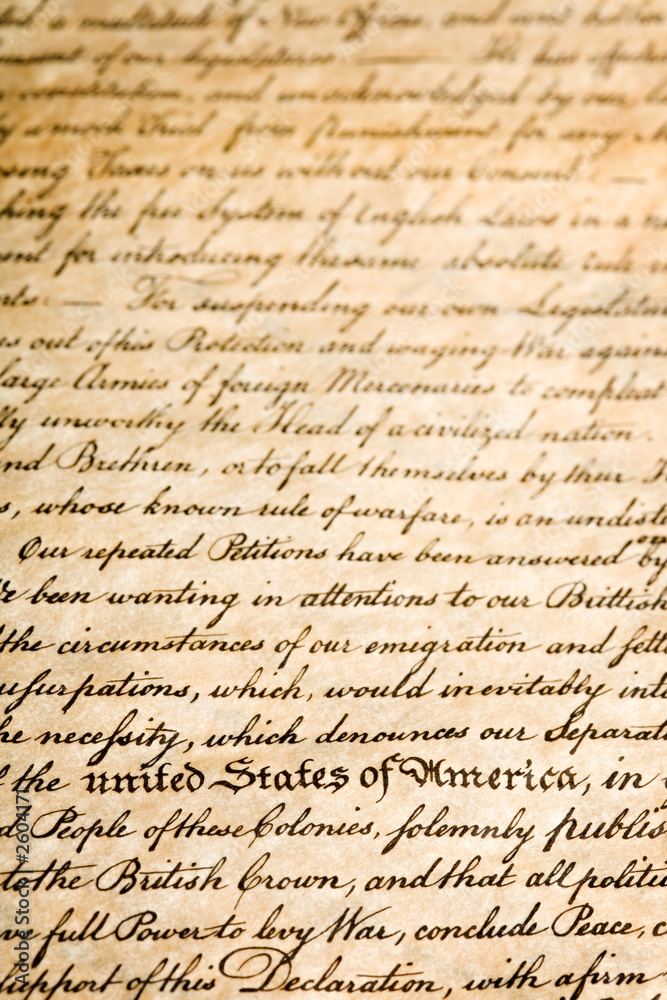 a multitude of New Offices, and sent hither
ment of our legislatures. — He has affected
constitution, and unacknowledged by our la
by a mock Trial from punishment for any M
osing Taxes on us without our Consent: —
shing the free System of English Laws in a n
ent for introducing the same absolute rule in
nts: — For suspending our own Legislatur
us out of his Protection and waging War again
large Armies of foreign Mercenaries to compleat
lly unworthy the Head of a civilized nation.
nd Brethren, or to fall themselves by their H
s, whose known rule of warfare, is an undist
Our repeated Petitions have been answered by
ve been wanting in attentions to our Brittish
the circumstances of our emigration and settle
usurpations, which, would inevitably int
he necessity, which denounces our Separat
f the united States of America, in
d People of these Colonies, solemnly publis
to the British Crown, and that all politi
ve full Power to levy War, conclude Peace, c
support of this Declaration, with a firm
Adobe Stock | #26041711